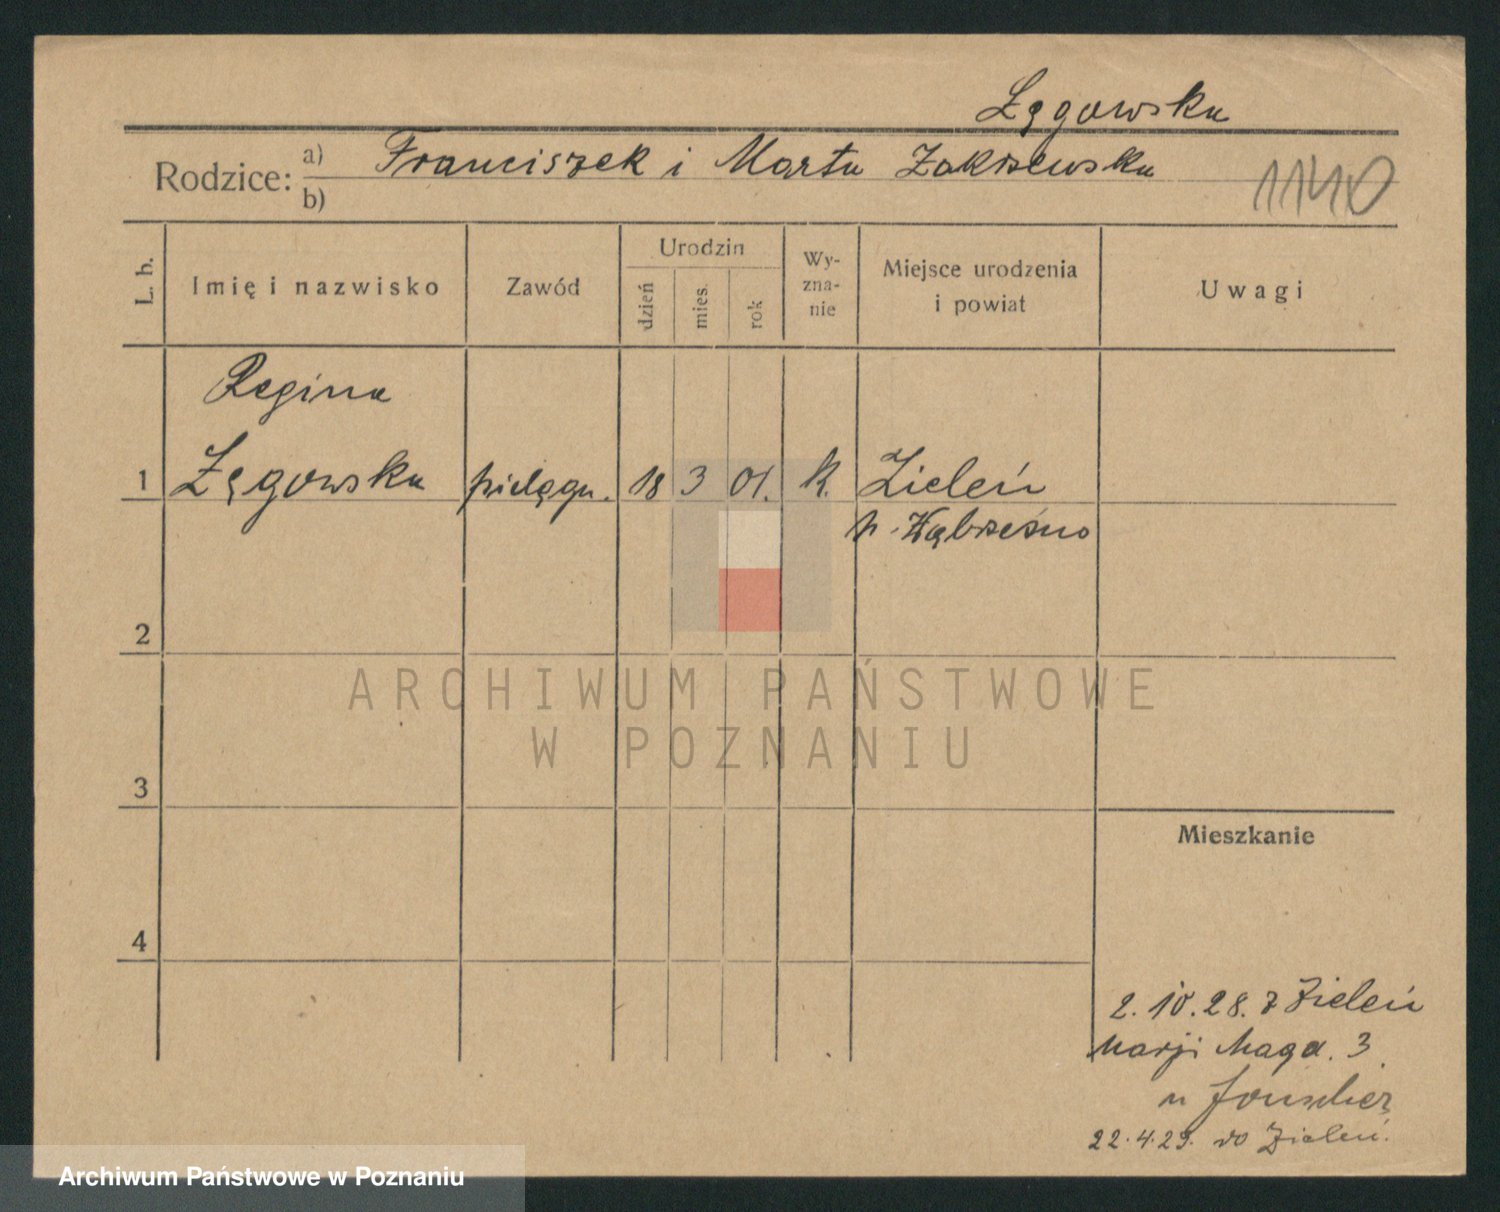 Łęgowska
Rodzice: a) Franciszek i Marta Zakrzewska
b)
1140
L. b.
Imię i nazwisko
Zawód
Urodzin
dzień
mies.
rok
Wy-
zna-
nie
Miejsce urodzenia
i powiat
Uwagi
Regina
1 Łęgowska pielęgn. 18 3 01. k. Zieleń
p. Wąbrzeźno
2
ARCHIWUM PAŃSTWOWE
W POZNANIU
3
Mieszkanie
4
2. 10. 28. z Zieleń
Marji Magd. 3
u
22. 4. 29. do Zieleń.
Archiwum Państwowe w Poznaniu